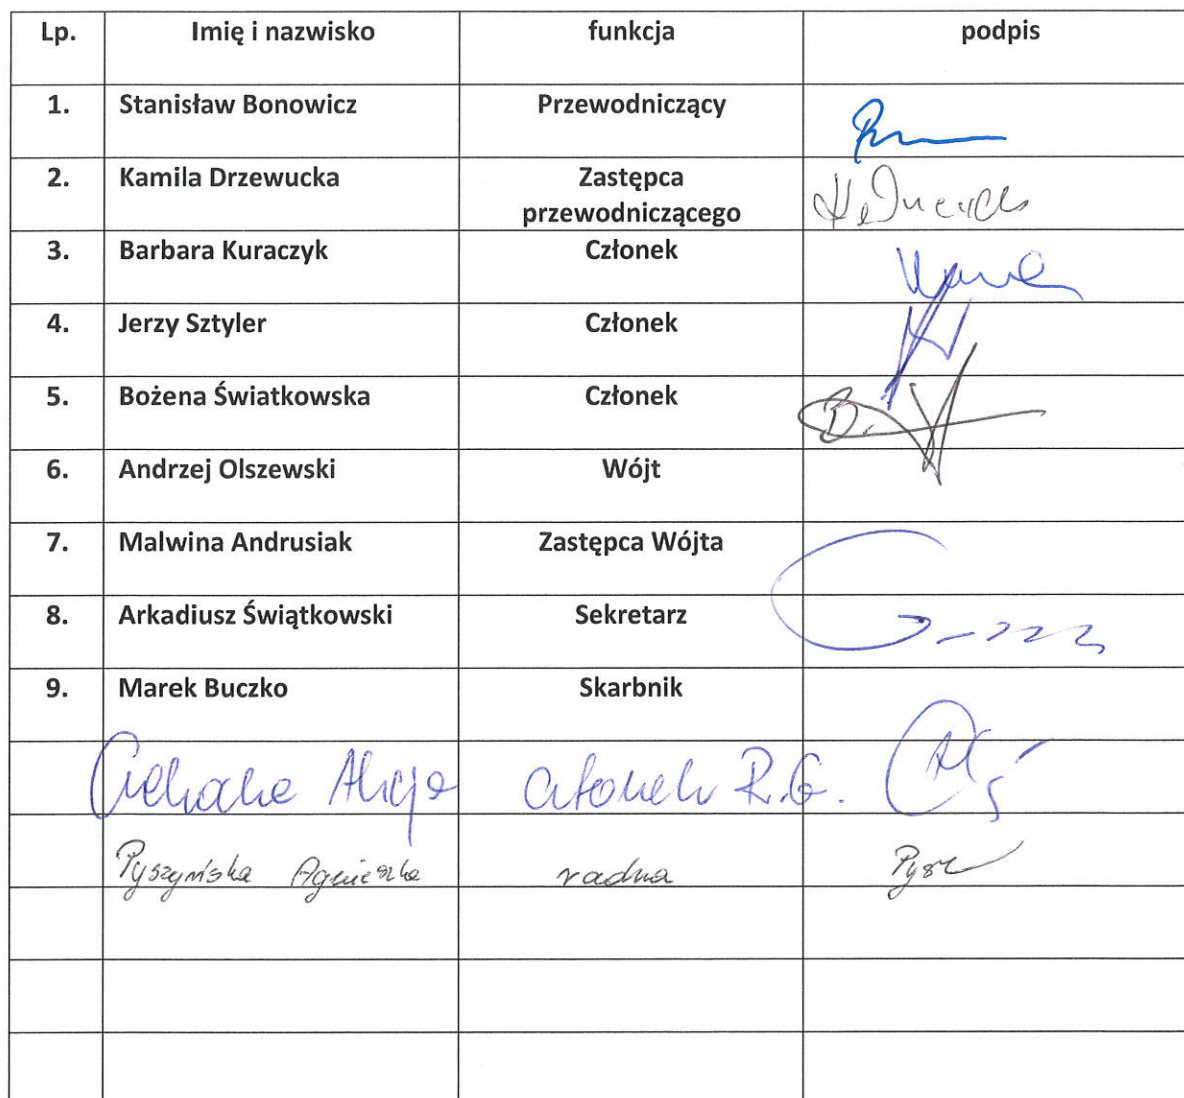 Lp. Imię i nazwisko funkcja podpis
1. Stanisław Bonowicz Przewodniczący
2. Kamila Drzewucka Zastępca
przewodniczącego
3. Barbara Kuraczyk Członek
4. Jerzy Sztyler Członek
5. Bożena Światkowska Członek
6. Andrzej Olszewski Wójt
7. Malwina Andrusiak Zastępca Wójta
8. Arkadiusz Świątkowski Sekretarz
9. Marek Buczko Skarbnik
Alicja członek R.G.
Pyszyńska Agnieszka radna Pysz